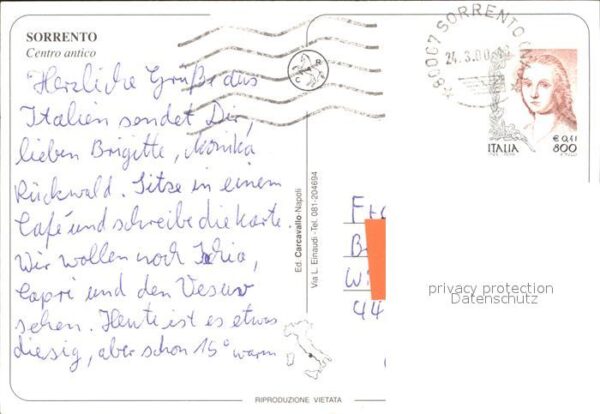 SORRENTO
Centro antico
Herzliche Grüße aus
Italien sendet Dir,
lieben Brigitte, Monika
Rückwald. Sitze in einem
Café und schreibe die Karte.
Wir wollen noch Ischia,
Capri und den Vesuv
sehen. Heute ist es etwas
diesig, aber schon 15° warm
Ed. Carcavallo-Napoli
Via L. Einaudi - Tel. 081-204694
RIPRODUZIONE VIETATA
80067 SORRENTO
24.3.00
€ 0,41
ITALIA 800
44
privacy protection
Datenschutz